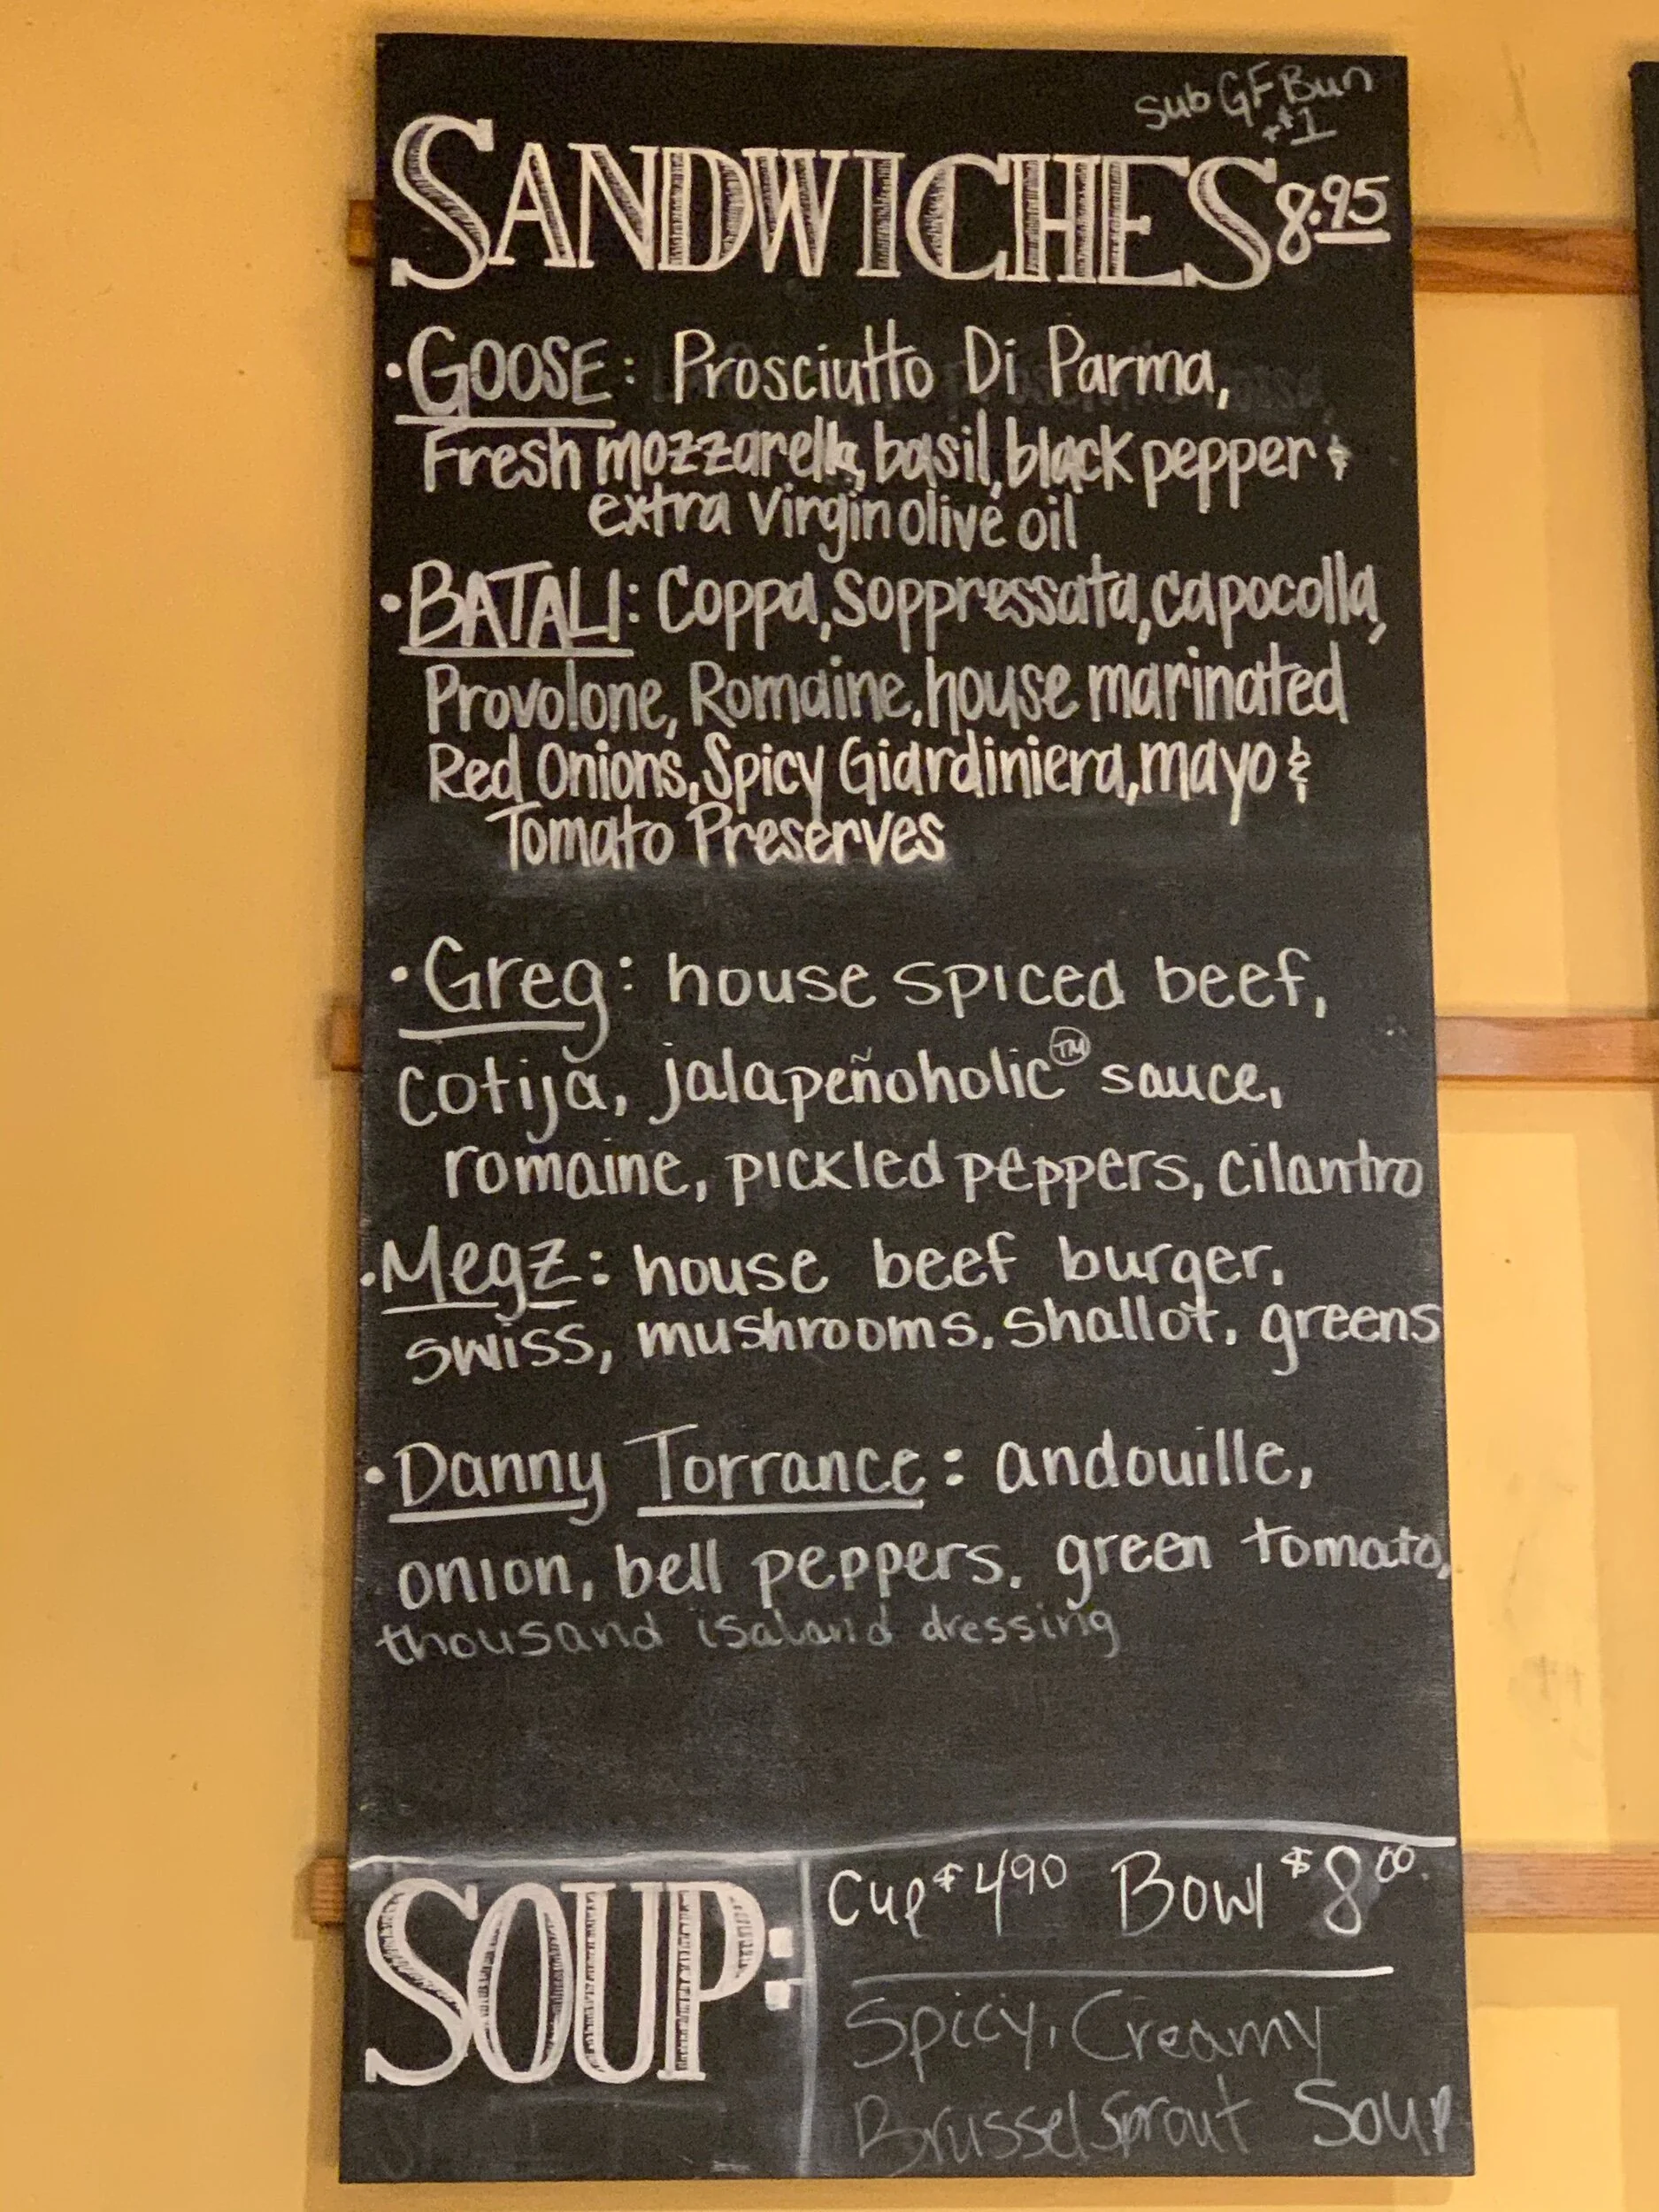 Sub GF Bun
+$1
SANDWICHES 8.95
• GOOSE: Prosciutto Di Parma,
Fresh mozzarella, basil, black pepper &
extra virgin olive oil
• BATALI: Coppa, Soppressata, capocolla,
Provolone, Romaine, house marinated
Red Onions, Spicy Giardiniera, mayo &
Tomato Preserves
• Greg: house spiced beef,
cotija, jalapeñoholic™ sauce,
romaine, pickled peppers, cilantro
• Megz: house beef burger,
swiss, mushrooms, shallot, greens
• Danny Torrance: andouille,
onion, bell peppers, green tomato,
thousand isaland dressing
SOUP:
Cup $4.90 Bowl $8.00
Spicy, Creamy
Brussel Sprout Soup